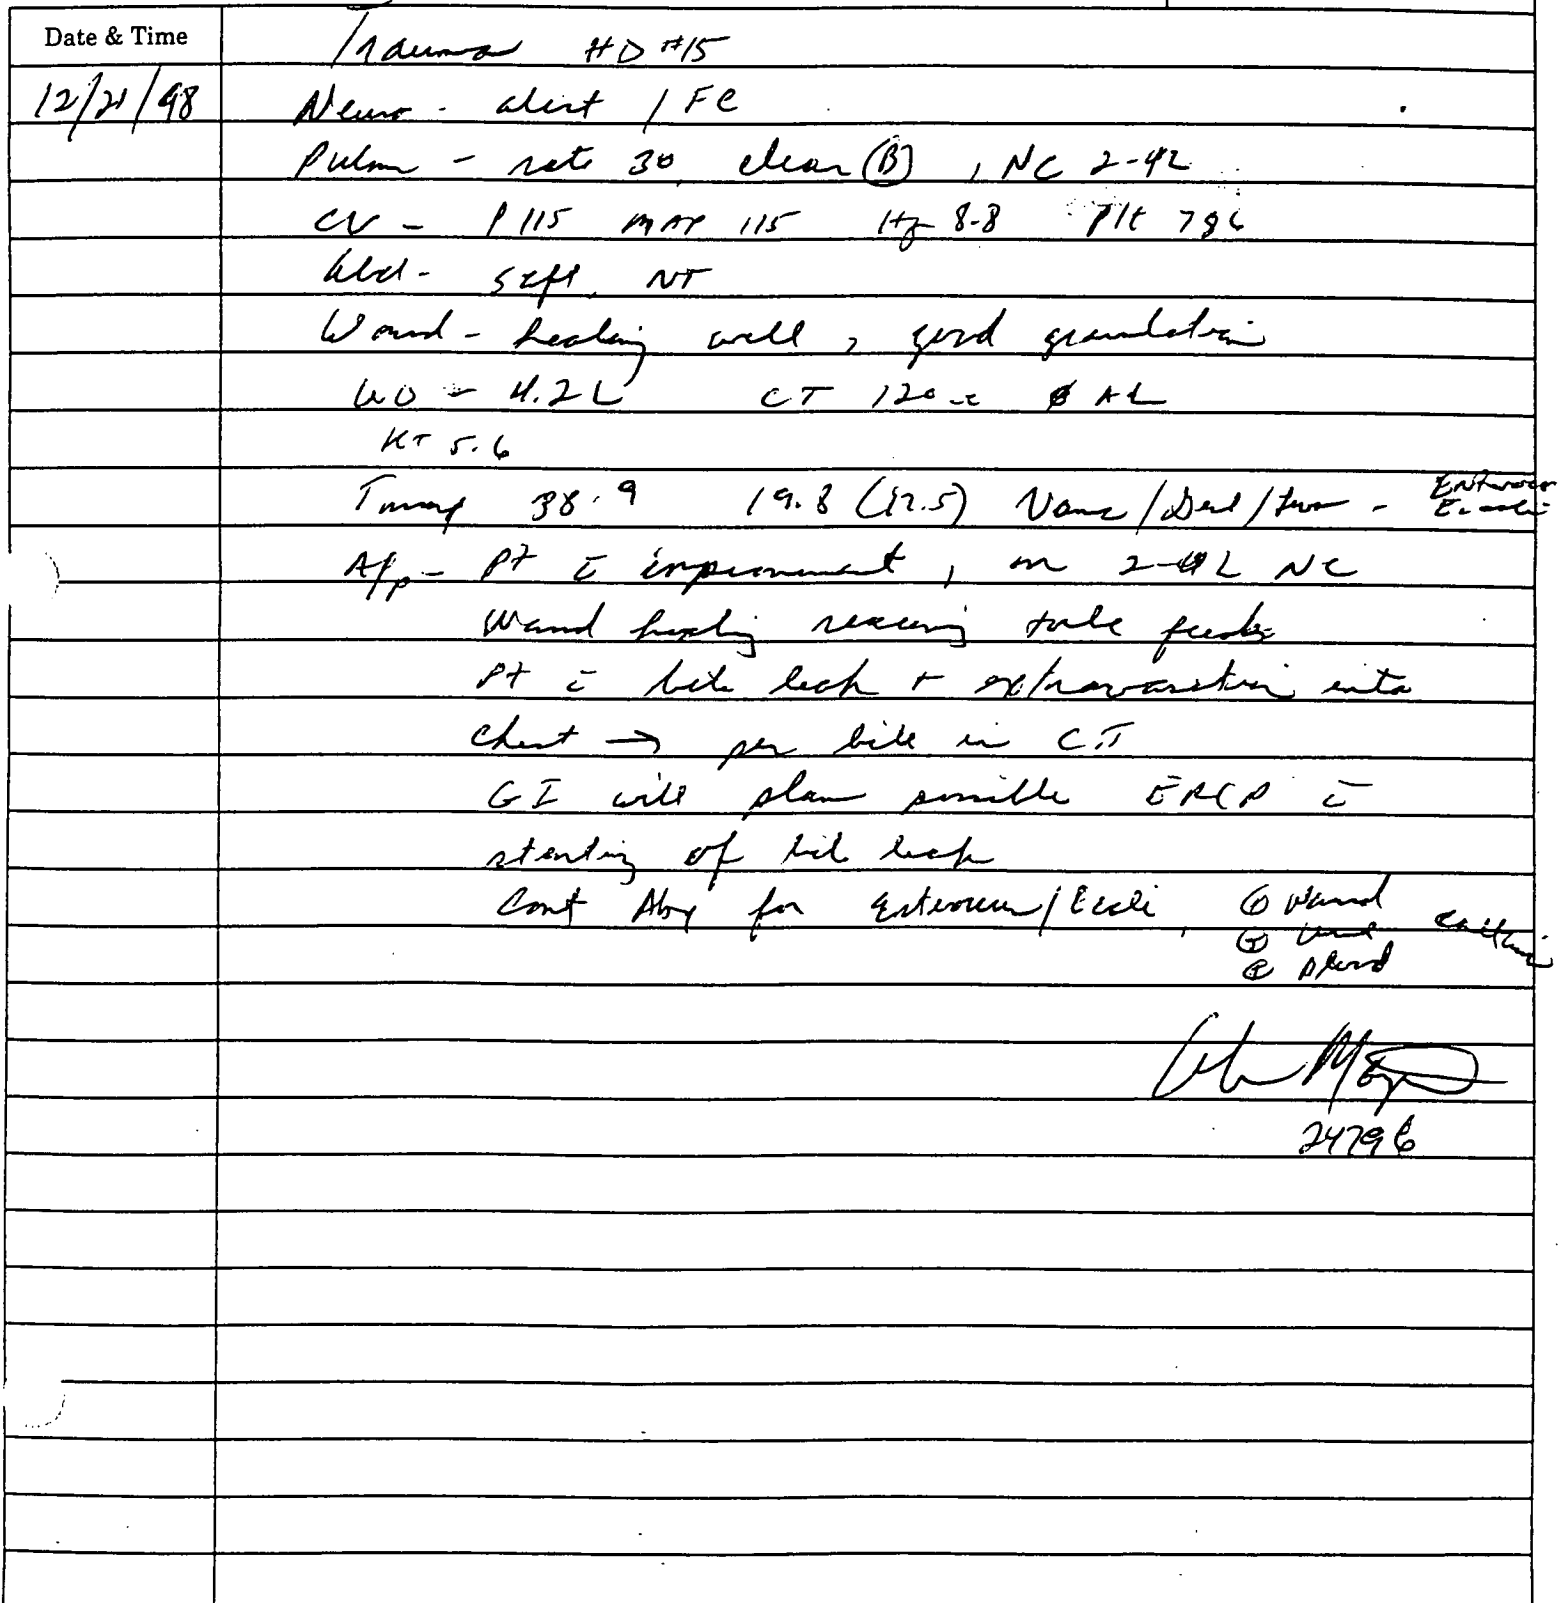 Date & Time
Trauma HD #15
12/21/98
Neuro - alert / FC
Pulm - rate 30, clear (B), NC 2-4L
CV - P 115 MAP 115 Hg 8.8 Plt 786
Abd - soft, NT
Wound - healing well, good granulation
UO - 4.2L CT 120cc Ø AL
K+ 5.6
Tmax 38.9 19.8 (17.5) Vanc / / -
Enterococ
E. coli
A/p - Pt c̄ improvement, on 2-4L NC
Wound healing receiving tube feeds
Pt c̄ bile leak + extravasation into
Chest → per bile in CT
GI will plan possible ERCP c̄
stenting of bile leak
Cont Abx for Enterococcus/Ecoli, ⊕ Wound
⊕ urine cultures
⊕ blood
24796